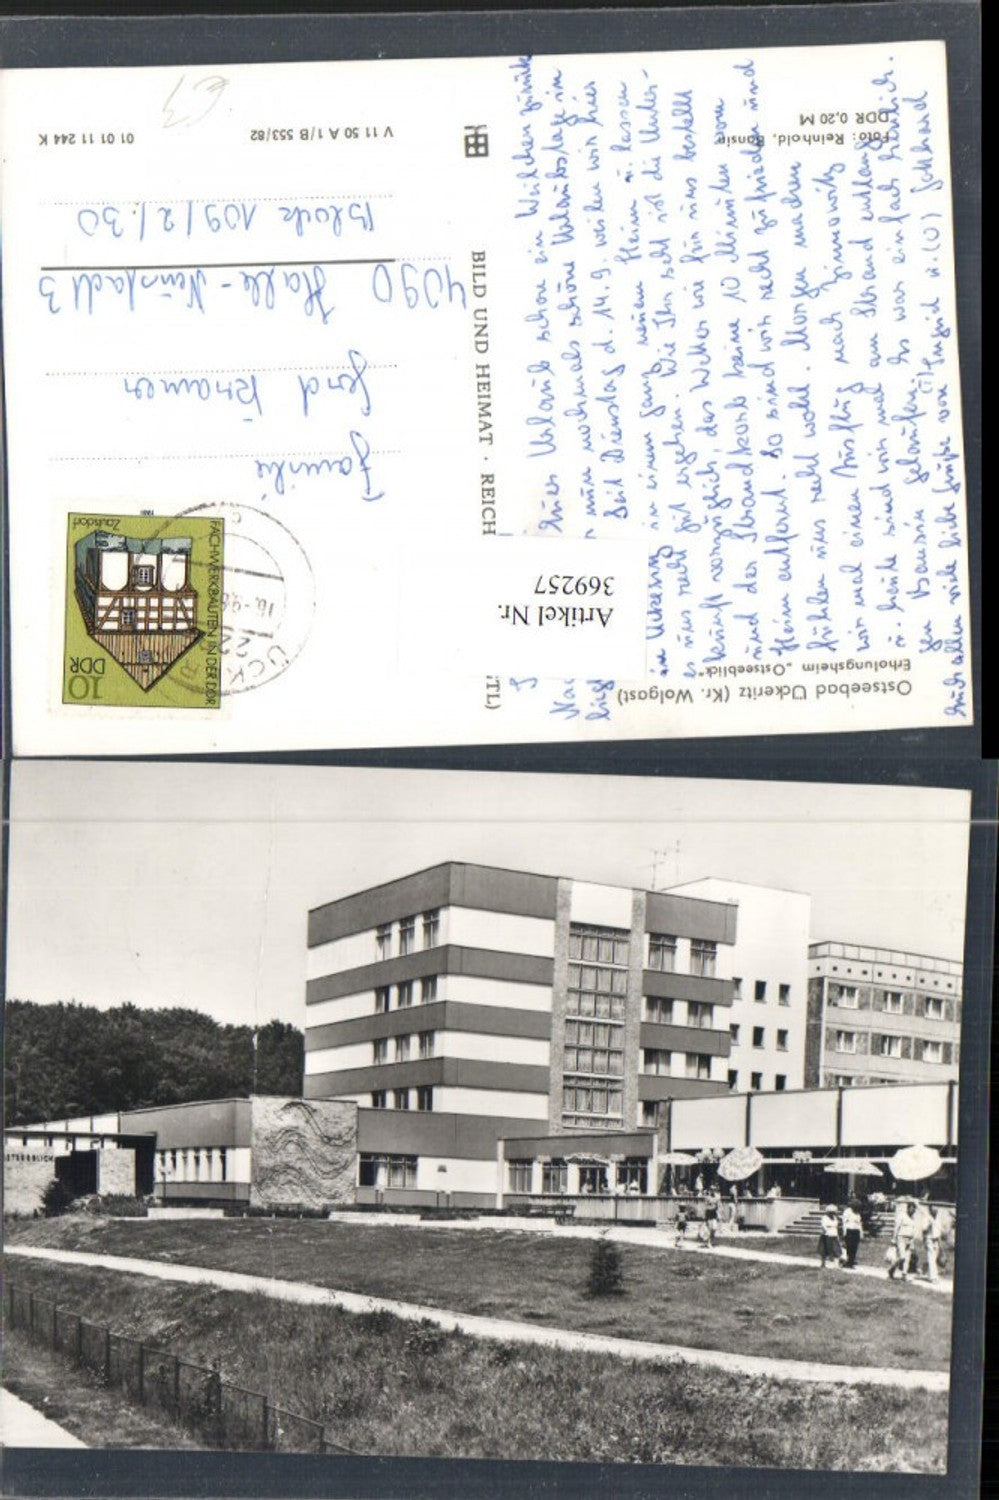 Ostseebad Ückeritz (Kr. Wolgast)
Erholungsheim „Ostseeblick"
Euer Urlaub schon ein Weilchen zurück
nun nochmals schöne Urlaubstage in
Seit Dienstag d. 14.9. weilen wir hier
in Ückeritz in einem ganz neuem Heim u. lassen
es uns recht gut ergehen. Wie Ihr seht ist die Unter-
kunft vorzüglich, das Wetter wie für uns bestellt
und der Strandkorb keine 10 Minuten vom
Heim entfernt. So sind wir recht zufrieden und
fühlen uns recht wohl. Morgen machen
wir mal einen Ausflug nach Zinnowitz
u. heute sind wir mal am Strand entlang
gen Bansin gelaufen. Es war einfach herrlich.
Euch allen viele liebe Grüße von Ingrid u. (U) Eckhard
Foto: Reinhold, Bansin
DDR 0,20 M
BILD UND HEIMAT · REICH
TL)
Artikel Nr.
369257
10
DDR
FACHWERKBAUTEN IN DER DDR
Zaulsdorf
1981
22
16.-9.8
Familie
Gerd Kramer
4090 Halle-Neustadt 3
Block 109/2/30
V 11 50 A 1/B 553/82
01 01 11 244 K
€3
OSTSEEBLICK